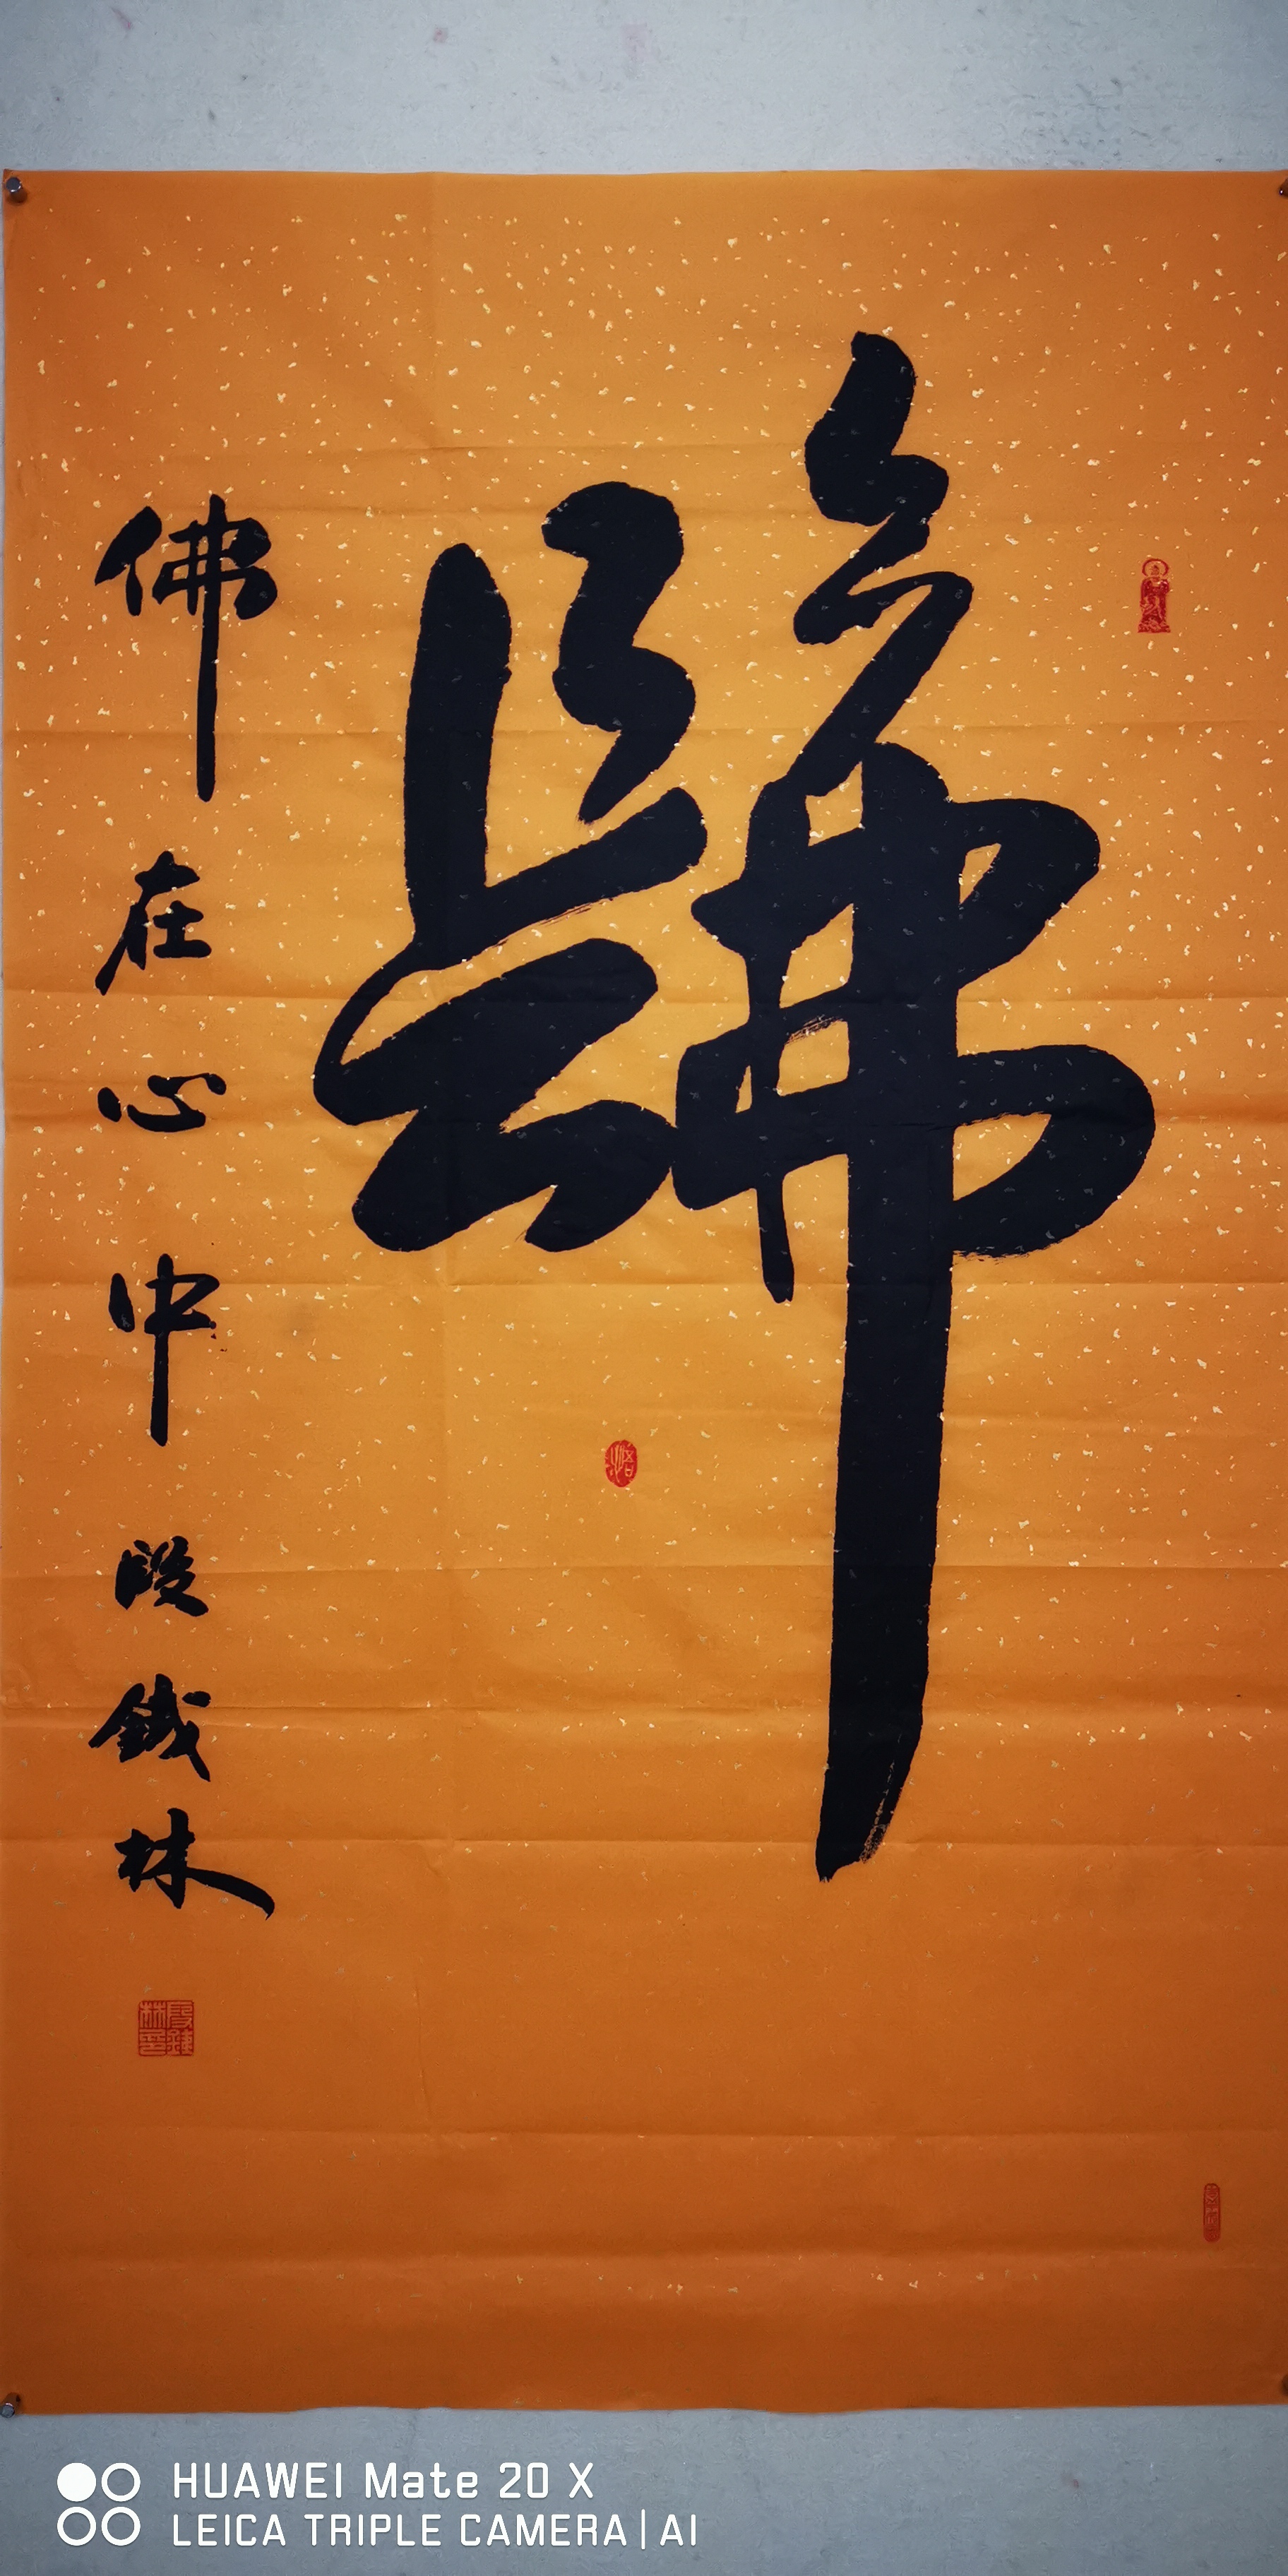 佛在心中 段鐵林
悟
段鐵林印
HUAWEI Mate 20 X
LEICA TRIPLE CAMERA | AI